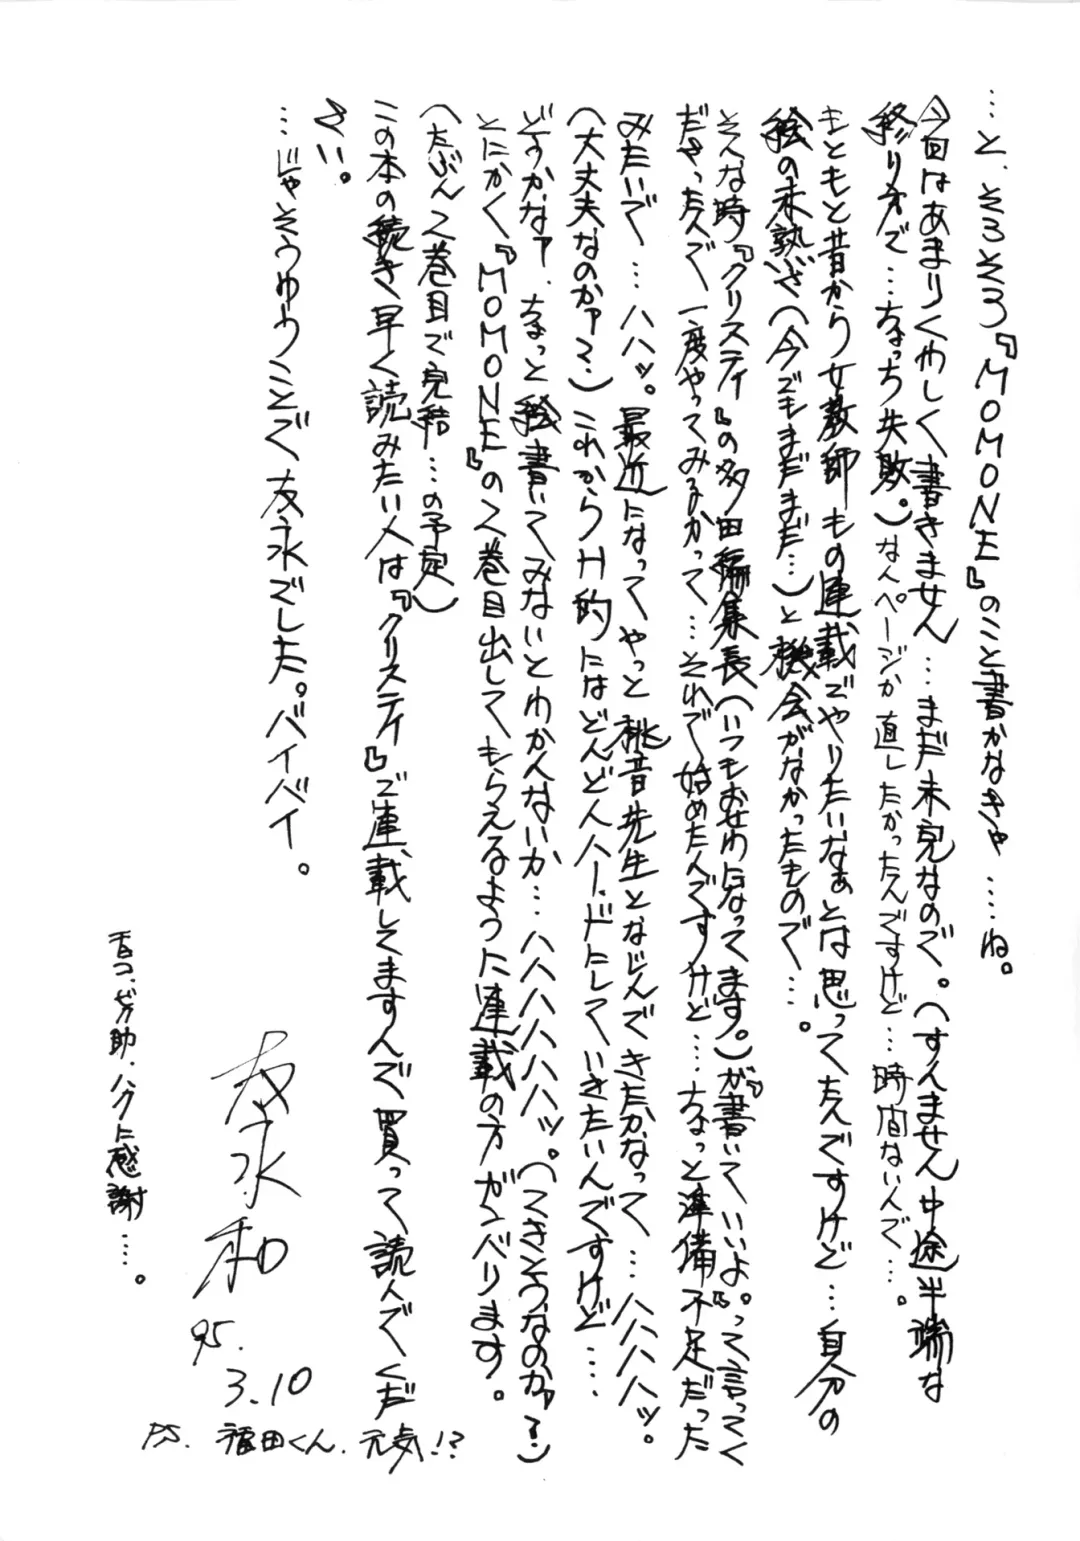 …と、そろそろ『MOMONE』のこと書かなきゃ……ね。
今回はあまりくわしく書きません…まだ未完なので。(すんません中途半端な
終り方で…ちょっち失敗。)なんページか直したかったんですけど…時間ないんで…。
もともと昔から女教師もの連載でやりたいなぁとは思ってたんですけど…自分の
絵の未熟さ(今でもまだまだ…)と機会がなかったもので…。
そんな時『クリスティ』の多田編集長(いつもお世わになってます。)が『書いていいよ。』って言ってく
ださったんで一度やってみるかって…それで始めたんですけど…ちょっと準備不足だった
みたいで…ハハッ。最近になってやっと桃音先生となじんできたかなって…ハハハハッ。
(大丈夫なのかァ?…)これからH的にはどんどんハードにしていきたいんですけど……
どうかなァ、ちょっと絵書いてみないとわかんないか…ハハハハハハッ。(できそうなのかァ?…)
とにかく『MOMONE』の2巻目出してもらえるように連載の方ガンバります。
(たぶん2巻目で完結…の予定)
この本の続き早く読みたい人は『クリスティ』で連載してますんで買って読んでくだ
さい。
…じゃそうゆうことで友永でした。バイバイ。
友永和
95.
3.10
助、ハクに感謝……。
P.S. 福田くん、元気!?